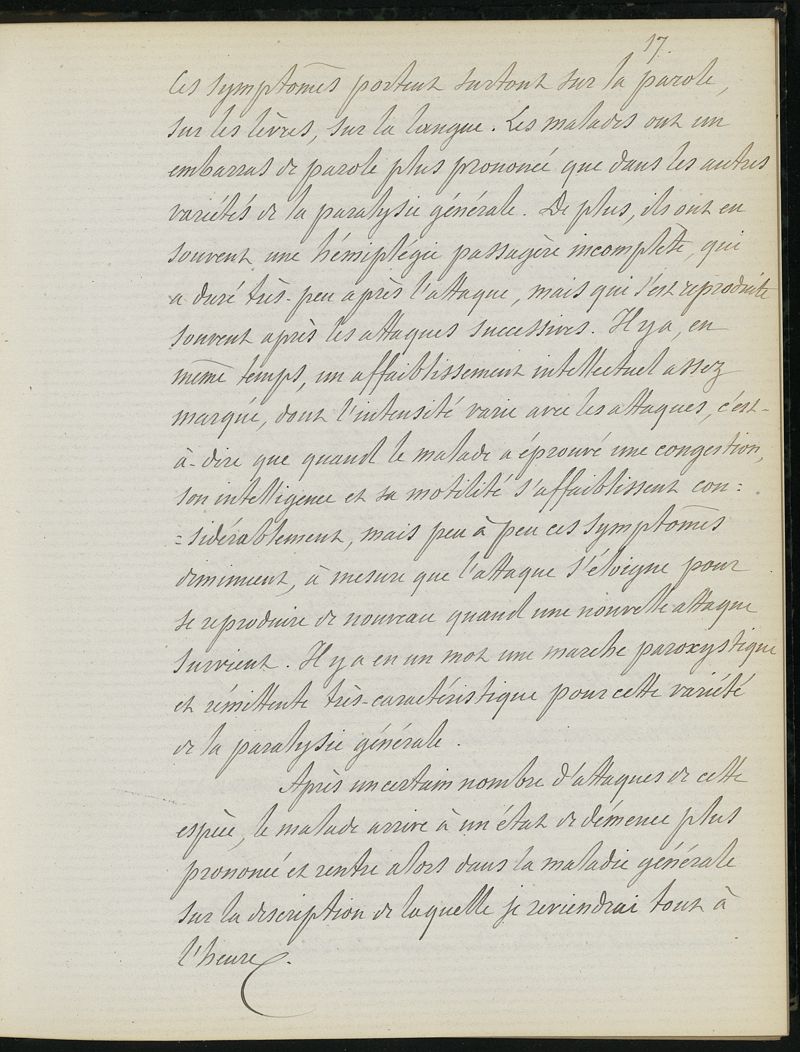 17.
Ces symptômes portent surtout sur la parole,
sur les lèvres, sur la langue. Les malades ont un
embarras de parole plus prononcé que dans les autres
variétés de la paralysie générale. De plus, ils ont eu
souvent une hémiplégie passagère incomplète, qui
a duré très-peu après l'attaque, mais qui s'est reproduite
souvent après les attaques successives. Il y a, en
même temps, un affaiblissement intellectuel assez
marqué, dont l'intensité varie avec les attaques, c'est-
à-dire que quand le malade a éprouvé une congestion,
son intelligence et sa motilité s'affaiblissent con=
=sidérablement, mais peu à peu ces symptômes
diminuent, à mesure que l'attaque s'éloigne pour
se reproduire de nouveau quand une nouvelle attaque
survient. Il y a en un mot une marche paroxystique
et rémittente très-caractéristique pour cette variété
de la paralysie générale.
Après un certain nombre d'attaques de cette
espèce, le malade arrive à un état de démence plus
prononcé et rentre alors dans la maladie générale
sur la description de laquelle je reviendrai tout à
l'heure.